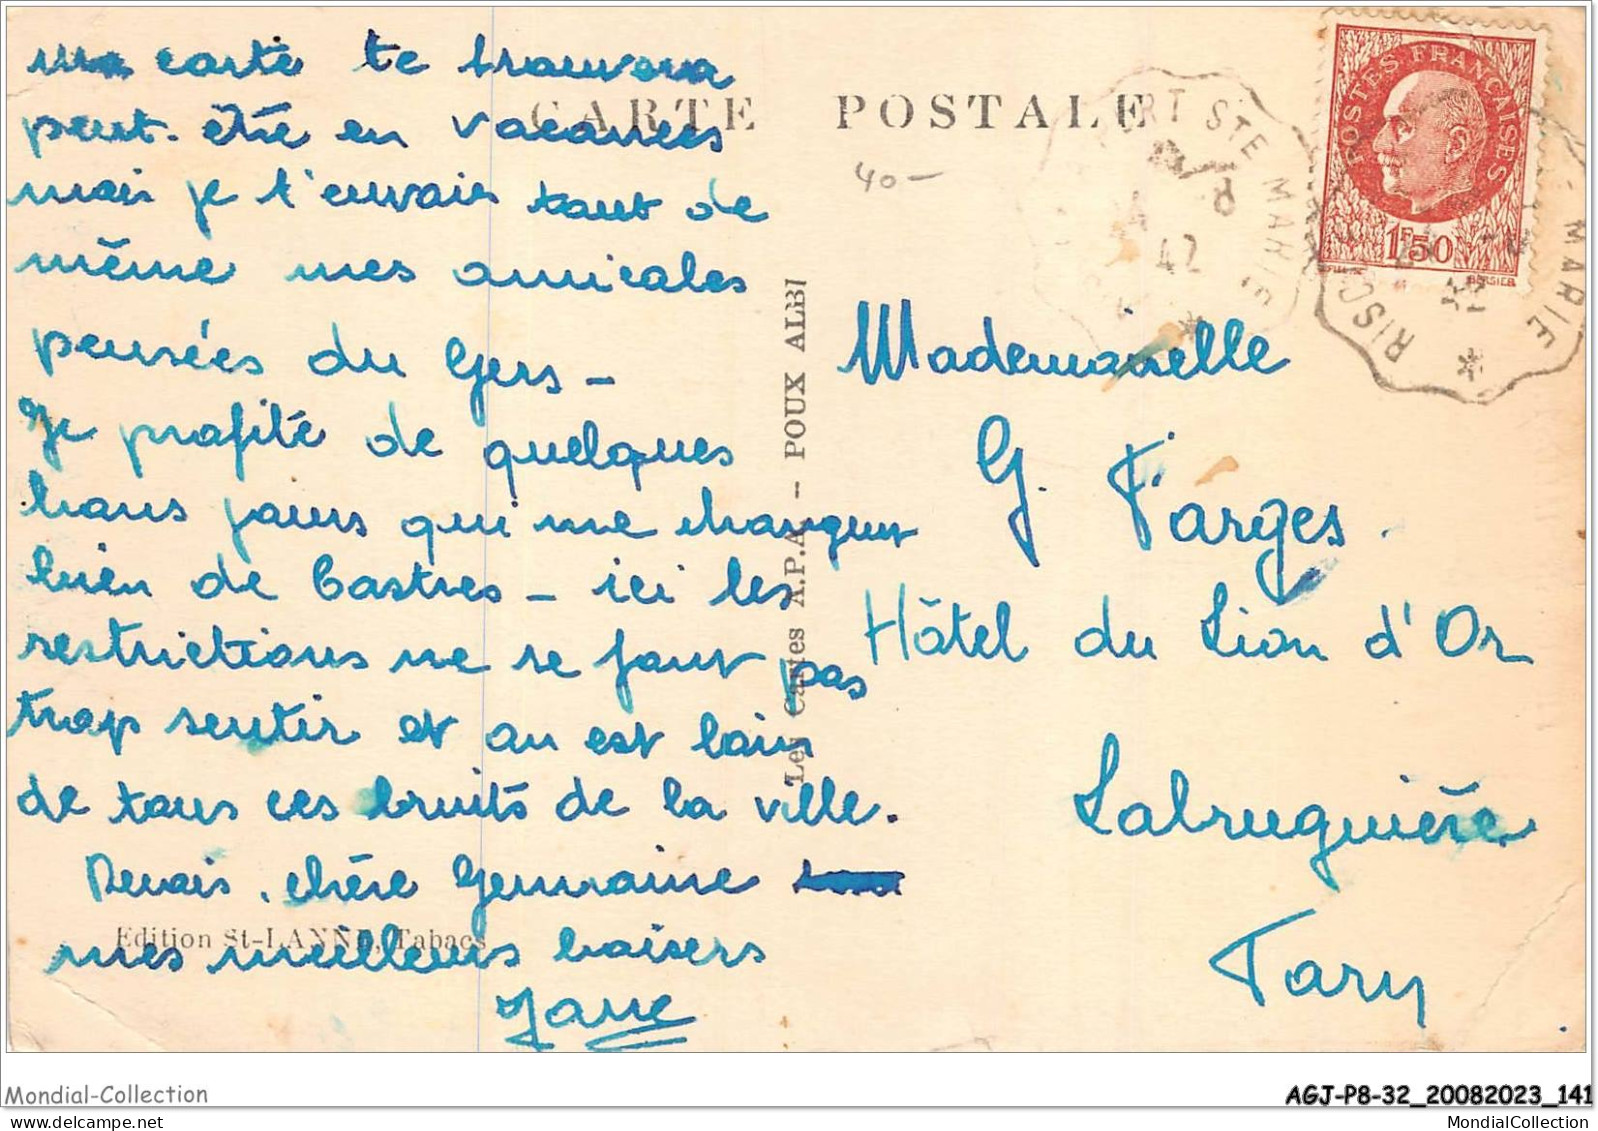 ma carte te trouvera
peut-être en vacances
mais je t'envais tout de
même mes amicales
pensées du Gers -
Je profite de quelques
bons jours qui me changent
bien de Castres - ici les
restrictions ne se font pas
trop sentir et on est loin
de tous ces bruits de la ville.
Reçois, chère Germaine
mes meilleurs baisers
Edition St-LANNE, Tabacs
CARTE POSTALE
40-
Les Cartes A.P.A. - POUX ALBI
Mademoiselle
G. Farges.
Hôtel du Lion d'Or
Labruguière
Tarn
POSTES FRANÇAISES
1F50
BERSIER
RT STE MARIE
42
RISC
MARIE
Mondial-Collection
AGJ-P8-32_20082023_141
MondialCollection